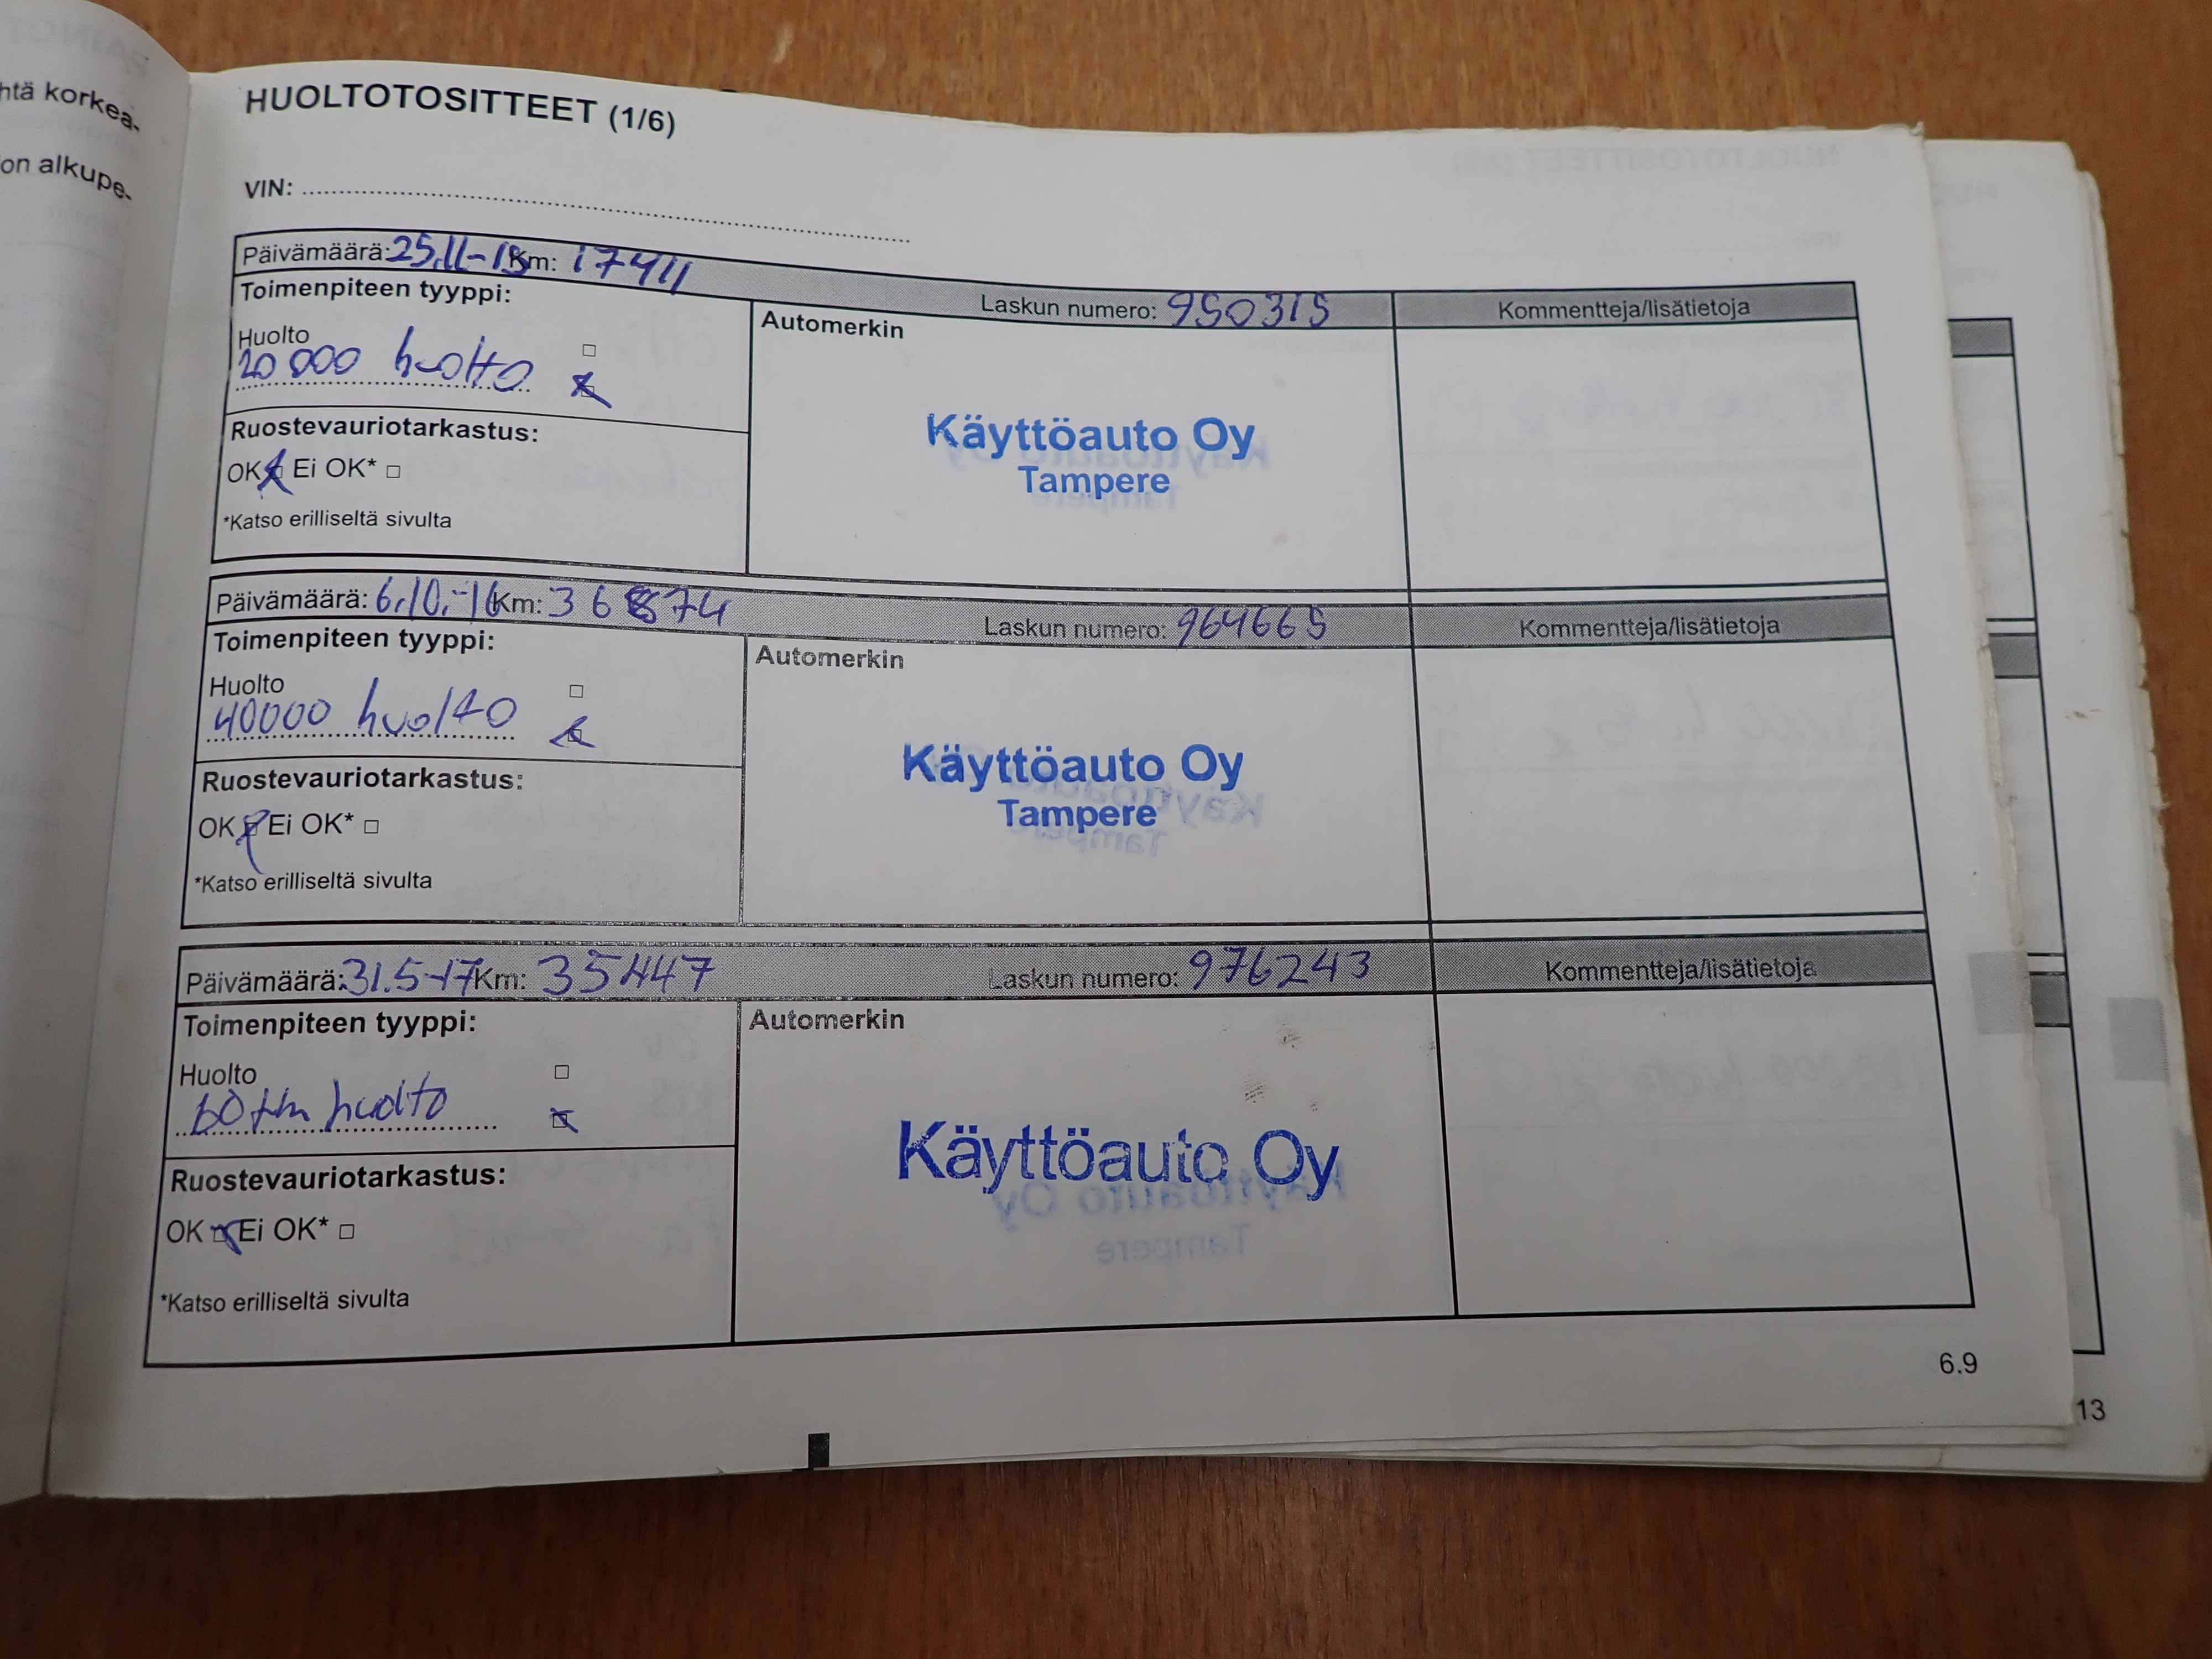 htä korkea-
on alkupe-
HUOLTOTOSITTEET (1/6)
VIN:
Päivämäärä: 25.11-15 Km: 17411 Laskun numero: 950315 Kommentteja/lisätietoja
Toimenpiteen tyyppi:
Automerkin
Huolto □
20 000 huolto
Käyttöauto Oy
Tampere
Ruostevauriotarkastus:
OK Ei OK* □
*Katso erilliseltä sivulta
Päivämäärä: 6.10.-16 Km: 36874 Laskun numero: 964665 Kommentteja/lisätietoja
Toimenpiteen tyyppi:
Automerkin
Huolto □
40000 huolto
Käyttöauto Oy
Tampere
Ruostevauriotarkastus:
OK Ei OK* □
*Katso erilliseltä sivulta
Päivämäärä: 31.5-17 Km: 35447 Laskun numero: 976243 Kommentteja/lisätietoja
Toimenpiteen tyyppi:
Automerkin
Huolto □
60 tkm huolto
Käyttöauto Oy
Ruostevauriotarkastus:
OK Ei OK* □
*Katso erilliseltä sivulta
6.9
13